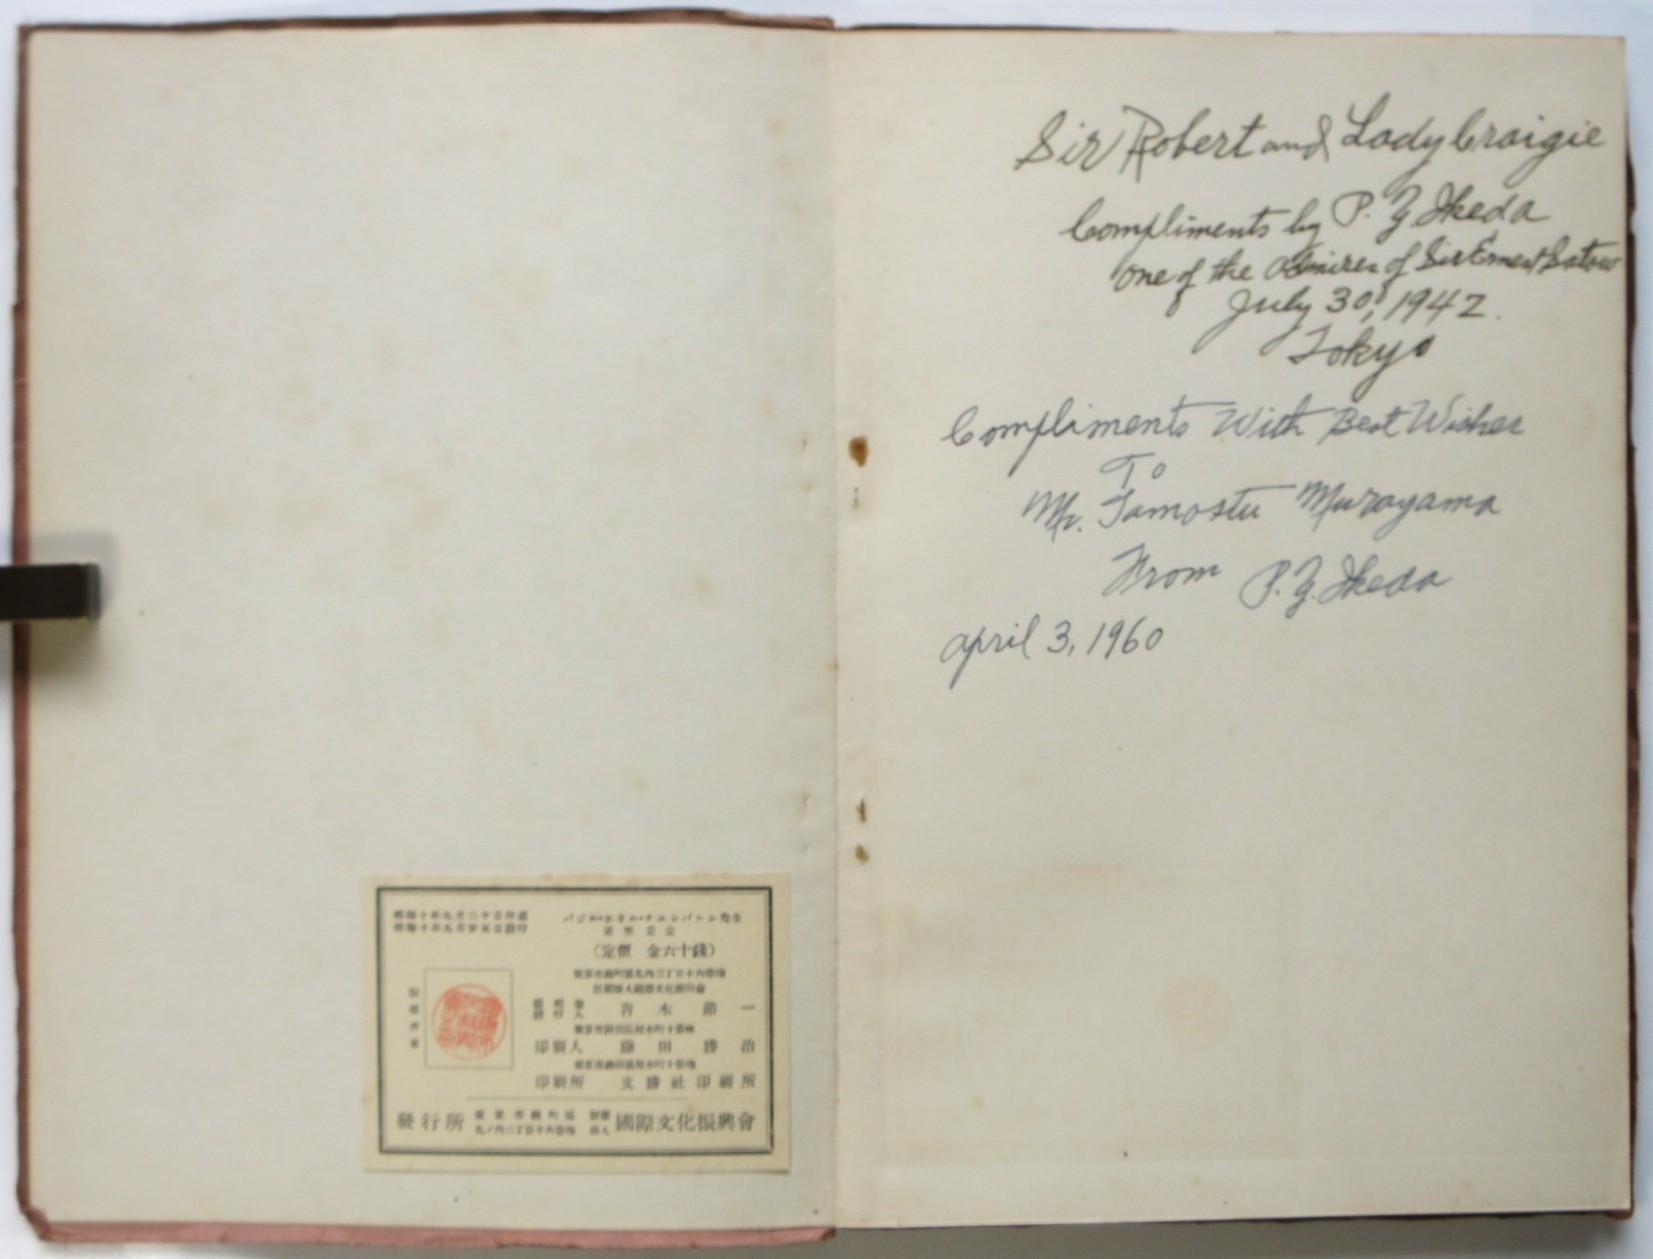 Sir Robert and Lady Craigie
Compliments by P. Y Ikeda
one of the admires of Sir Ernest Satow
July 30, 1942.
Tokyo
Compliments With Best Wishes
To
Mr. Tamostu Murayama
From P. Y. Ikeda
april 3, 1960
昭和十年九月二十日印刷
昭和十年九月廿五日發行
バジル・ホオル・チエンバレン先生
追悼記念
(定價 金六十錢)
東京市麹町區丸ノ內二丁目十六番地
財團法人國際文化振興會
青木節一
印刷人 藤田勝治
印刷所 文勝社印刷所
發行所 東京市麹町區 財團 國際文化振興會
丸ノ內二丁目十六番地 法人